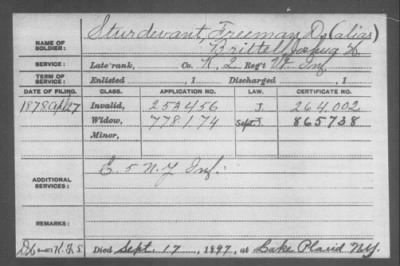 NAME OF SOLDIER: Sturdevant, Freeman D. (alias)
Brittell, Joshua
SERVICE: Late rank, Co. K, 2 Reg't Vt. Inf.
TERM OF SERVICE: Enlisted , 1 Discharged , 1
DATE OF FILING. CLASS. APPLICATION NO. LAW. CERTIFICATE NO.
1878 Apl 27 Invalid, 253456 J. 264,002
Widow, 778174 865738
Minor,
ADDITIONAL SERVICES: E. 5 N.Y. Inf.
REMARKS:
Died Sept. 17, 1897, at Lake Placid N.Y.